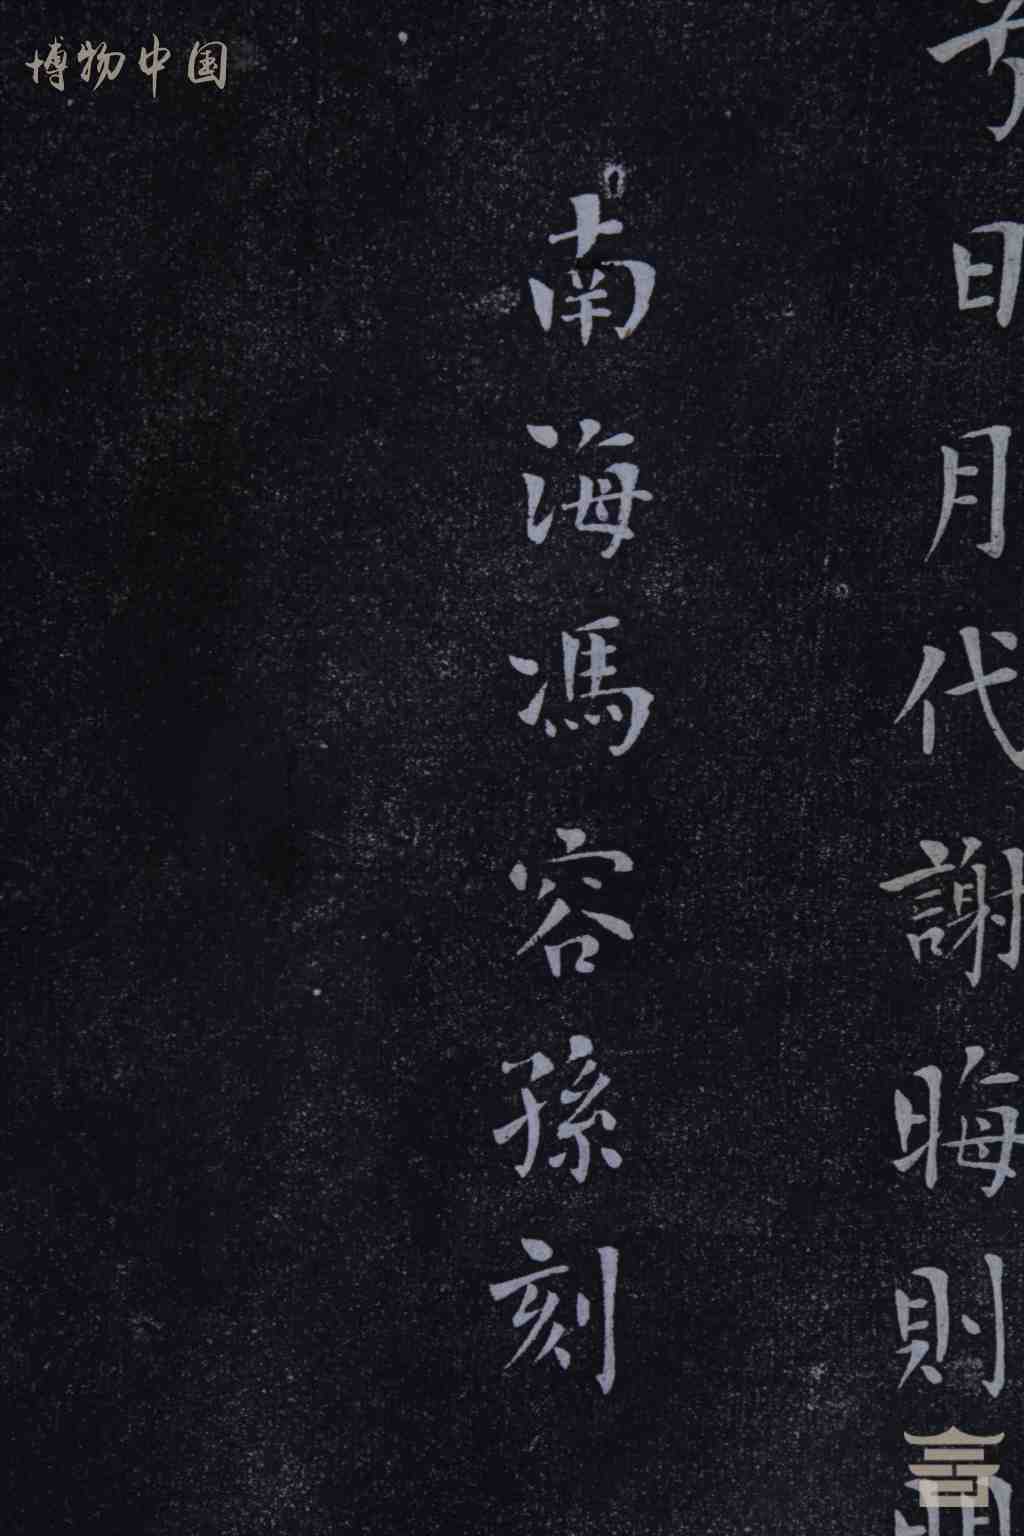 博物中国
日月代謝晦則
南海馮容孫刻